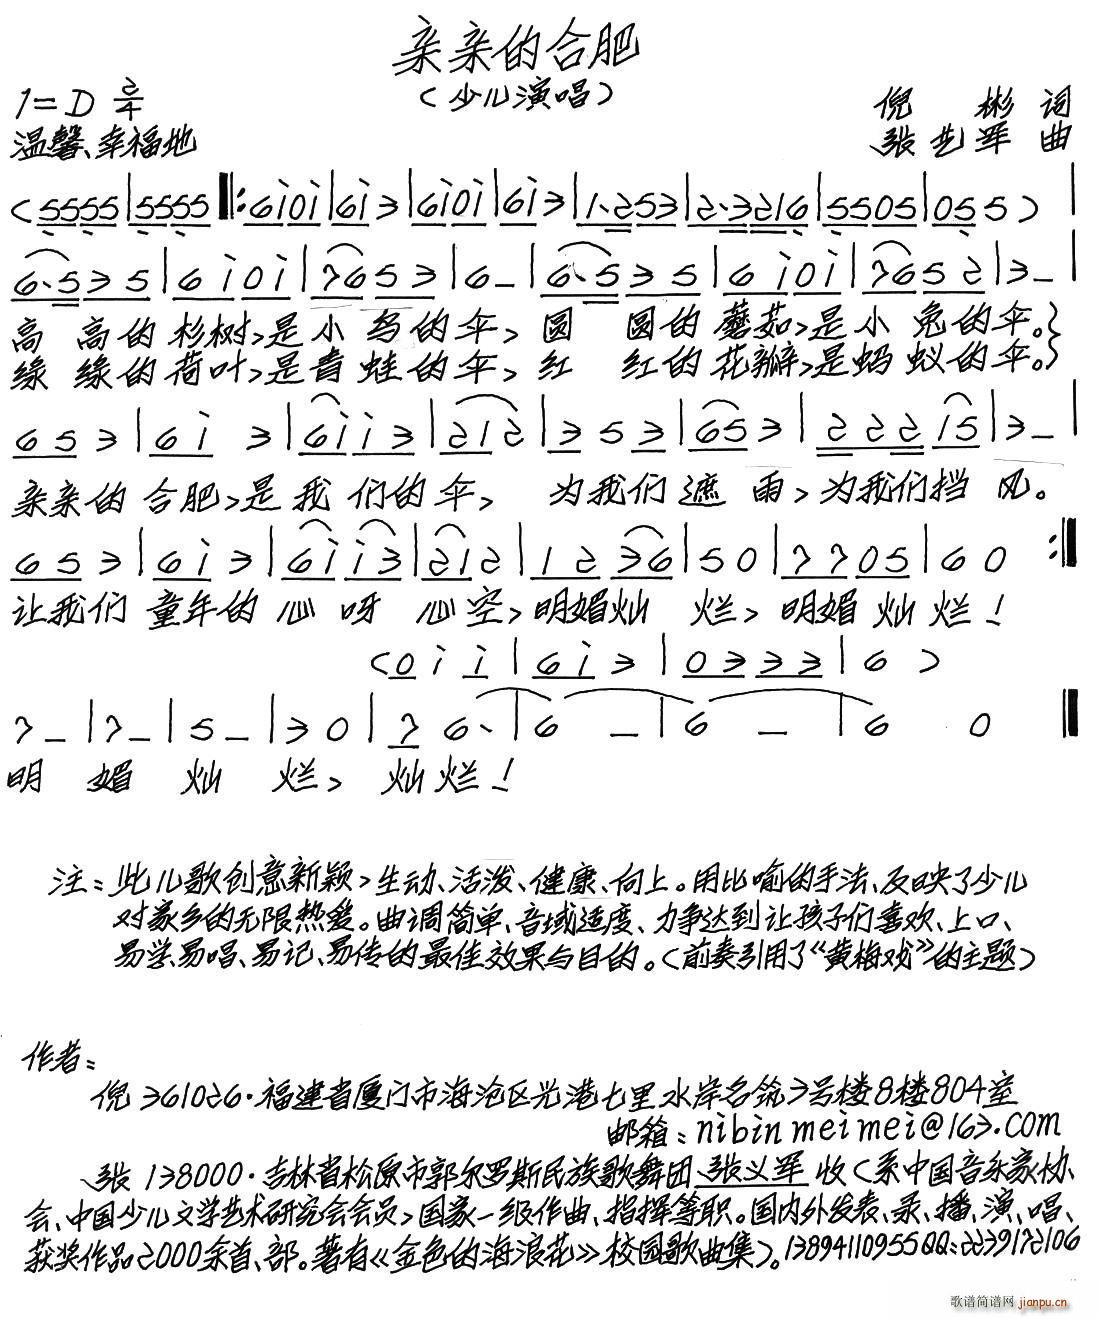 亲亲的合肥
(少儿演唱)
1=D 2/4
倪 彬 词
温馨、幸福地
张艺军 曲
(5555|5555‖:6i0i|6i3|6i0i|6i3|1·253|2·3216|5505|055)|
6·535|6i0i|7653|6-|6·535|6i0i|7652|3-|
高 高的杉树,是小 鸟的伞,圆 圆的蘑茹,是小 兔的伞。}
缘 缘的荷叶,是青 蛙的伞,红 红的花瓣,是蚂 蚁的伞。}
653|6i 3|6ii3|212|353|653|22215|3-|
亲亲的合肥,是我们的伞, 为我们遮雨,为我们挡 风。
653|6i3|6ii3|212|1236|50|7705|60:‖
让我们童年的心呀 心空,明媚灿 烂,明媚灿烂!
(0ii|6i3|0333|6)
7-|7-|5-|30|76·|6 -|6 -|6 0‖
明 媚 灿 烂, 灿烂!
注:此儿歌创意新颖,生动、活泼、健康、向上。用比喻的手法、反映了少儿
对家乡的无限热爱。曲调简单、音域适度、力争达到让孩子们喜欢、上口、
易学、易唱、易记、易传的最佳效果与目的。(前奏引用了《黄梅戏》的主题)
作者:
倪361026·福建省厦门市海沧区光港七里水岸名筑3号楼8楼804室
邮箱:nibinmeimei@163.com
张138000·吉林省松原市郭尔罗斯民族歌舞团 张义军 收(系中国音乐家协
会、中国少儿文学艺术研究会会员,国家一级作曲、指挥等职。国内外发表、录、播、演、唱、
获奖作品2000余首、部。著有《金色的海浪花》校园歌曲集)。13894110955QQ:2239172106
歌谱简谱网 jianpu.cn